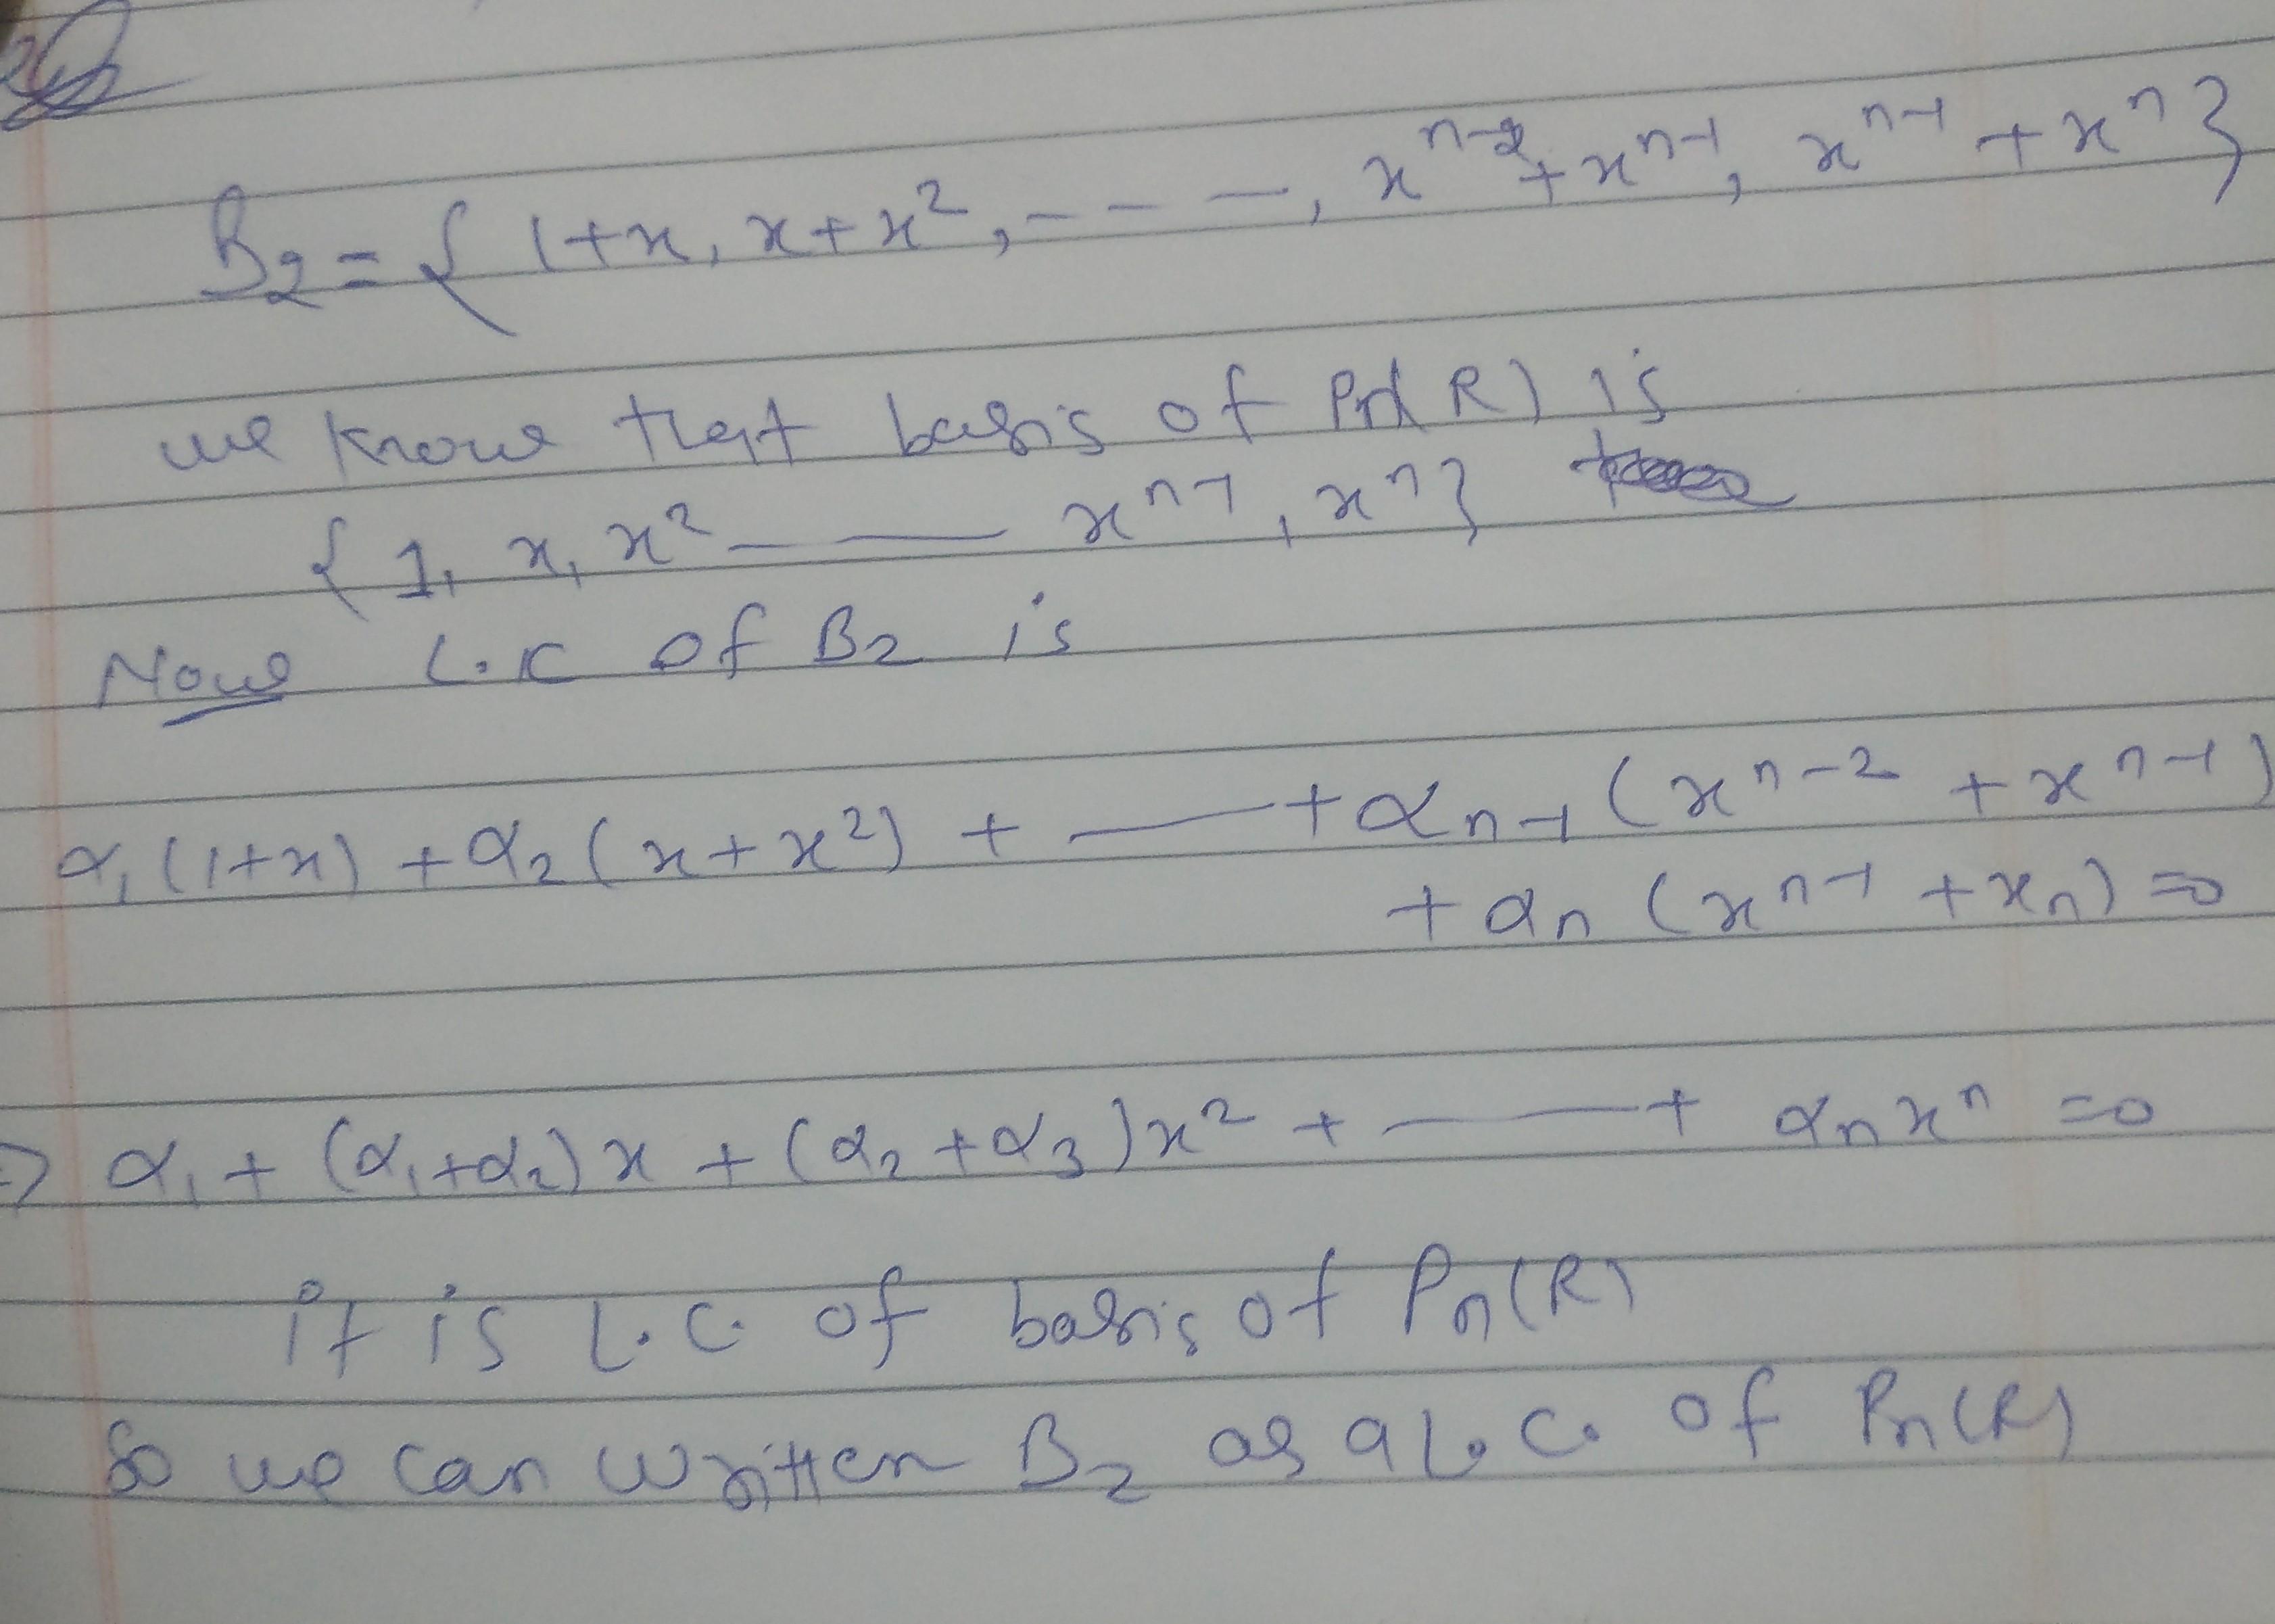 B₂ = { 1+x, x+x², - - -, xⁿ⁻²+xⁿ⁻¹, xⁿ⁻¹+xⁿ}
we know that basis of Pn(R) is
{ 1, x, x² - — xⁿ⁻¹, xⁿ}
Now L.C of B₂ is
α₁(1+x) + α₂(x+x²) + — + αₙ₋₁(xⁿ⁻² + xⁿ⁻¹)
+ αₙ (xⁿ⁻¹ + xₙ) =0
⇒ α₁ + (α₁+α₂)x + (α₂+α₃)x² + — + αₙxⁿ =0
it is L.C. of basis of Pₙ(R)
So we can written B₂ as a L.C. of Pₙ(R)